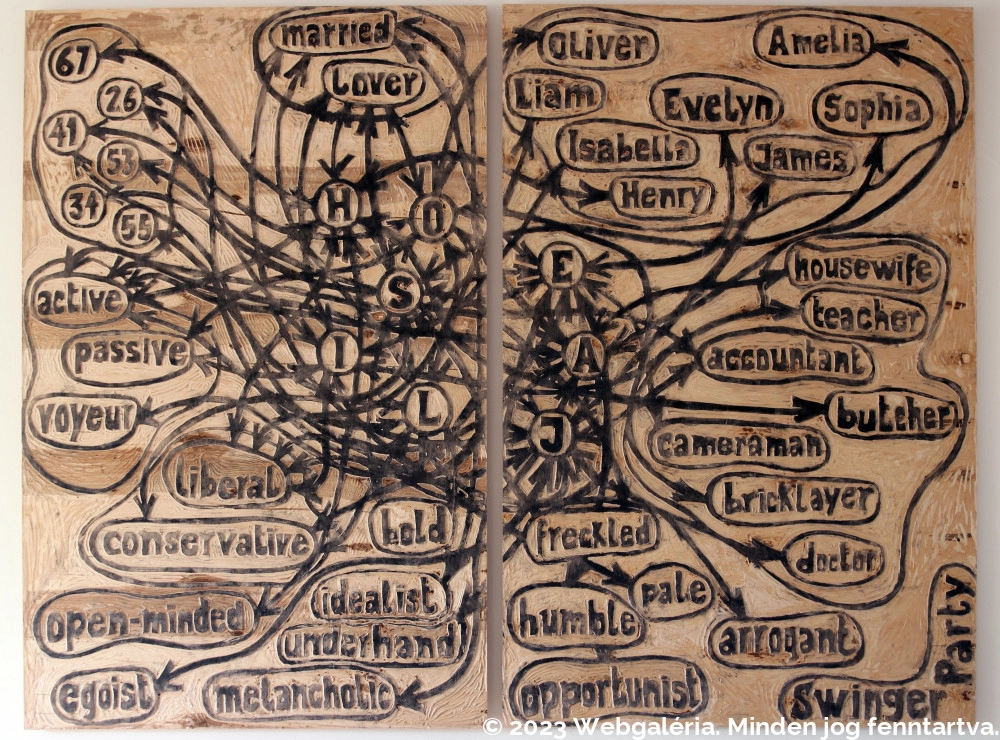 67
26
41
53
34
55
married
Lover
H
O
S
I
L
active
passive
voyeur
liberal
conservative
bold
open-minded
idealist
underhand
egoist
melancholic
Oliver
Amelia
Liam
Evelyn
Sophia
Isabella
James
Henry
E
A
J
housewife
teacher
accountant
butcher
cameraman
bricklayer
doctor
freckled
pale
humble
arrogant
opportunist
Swinger
Party
© 2023 Webgaléria. Minden jog fenntartva.